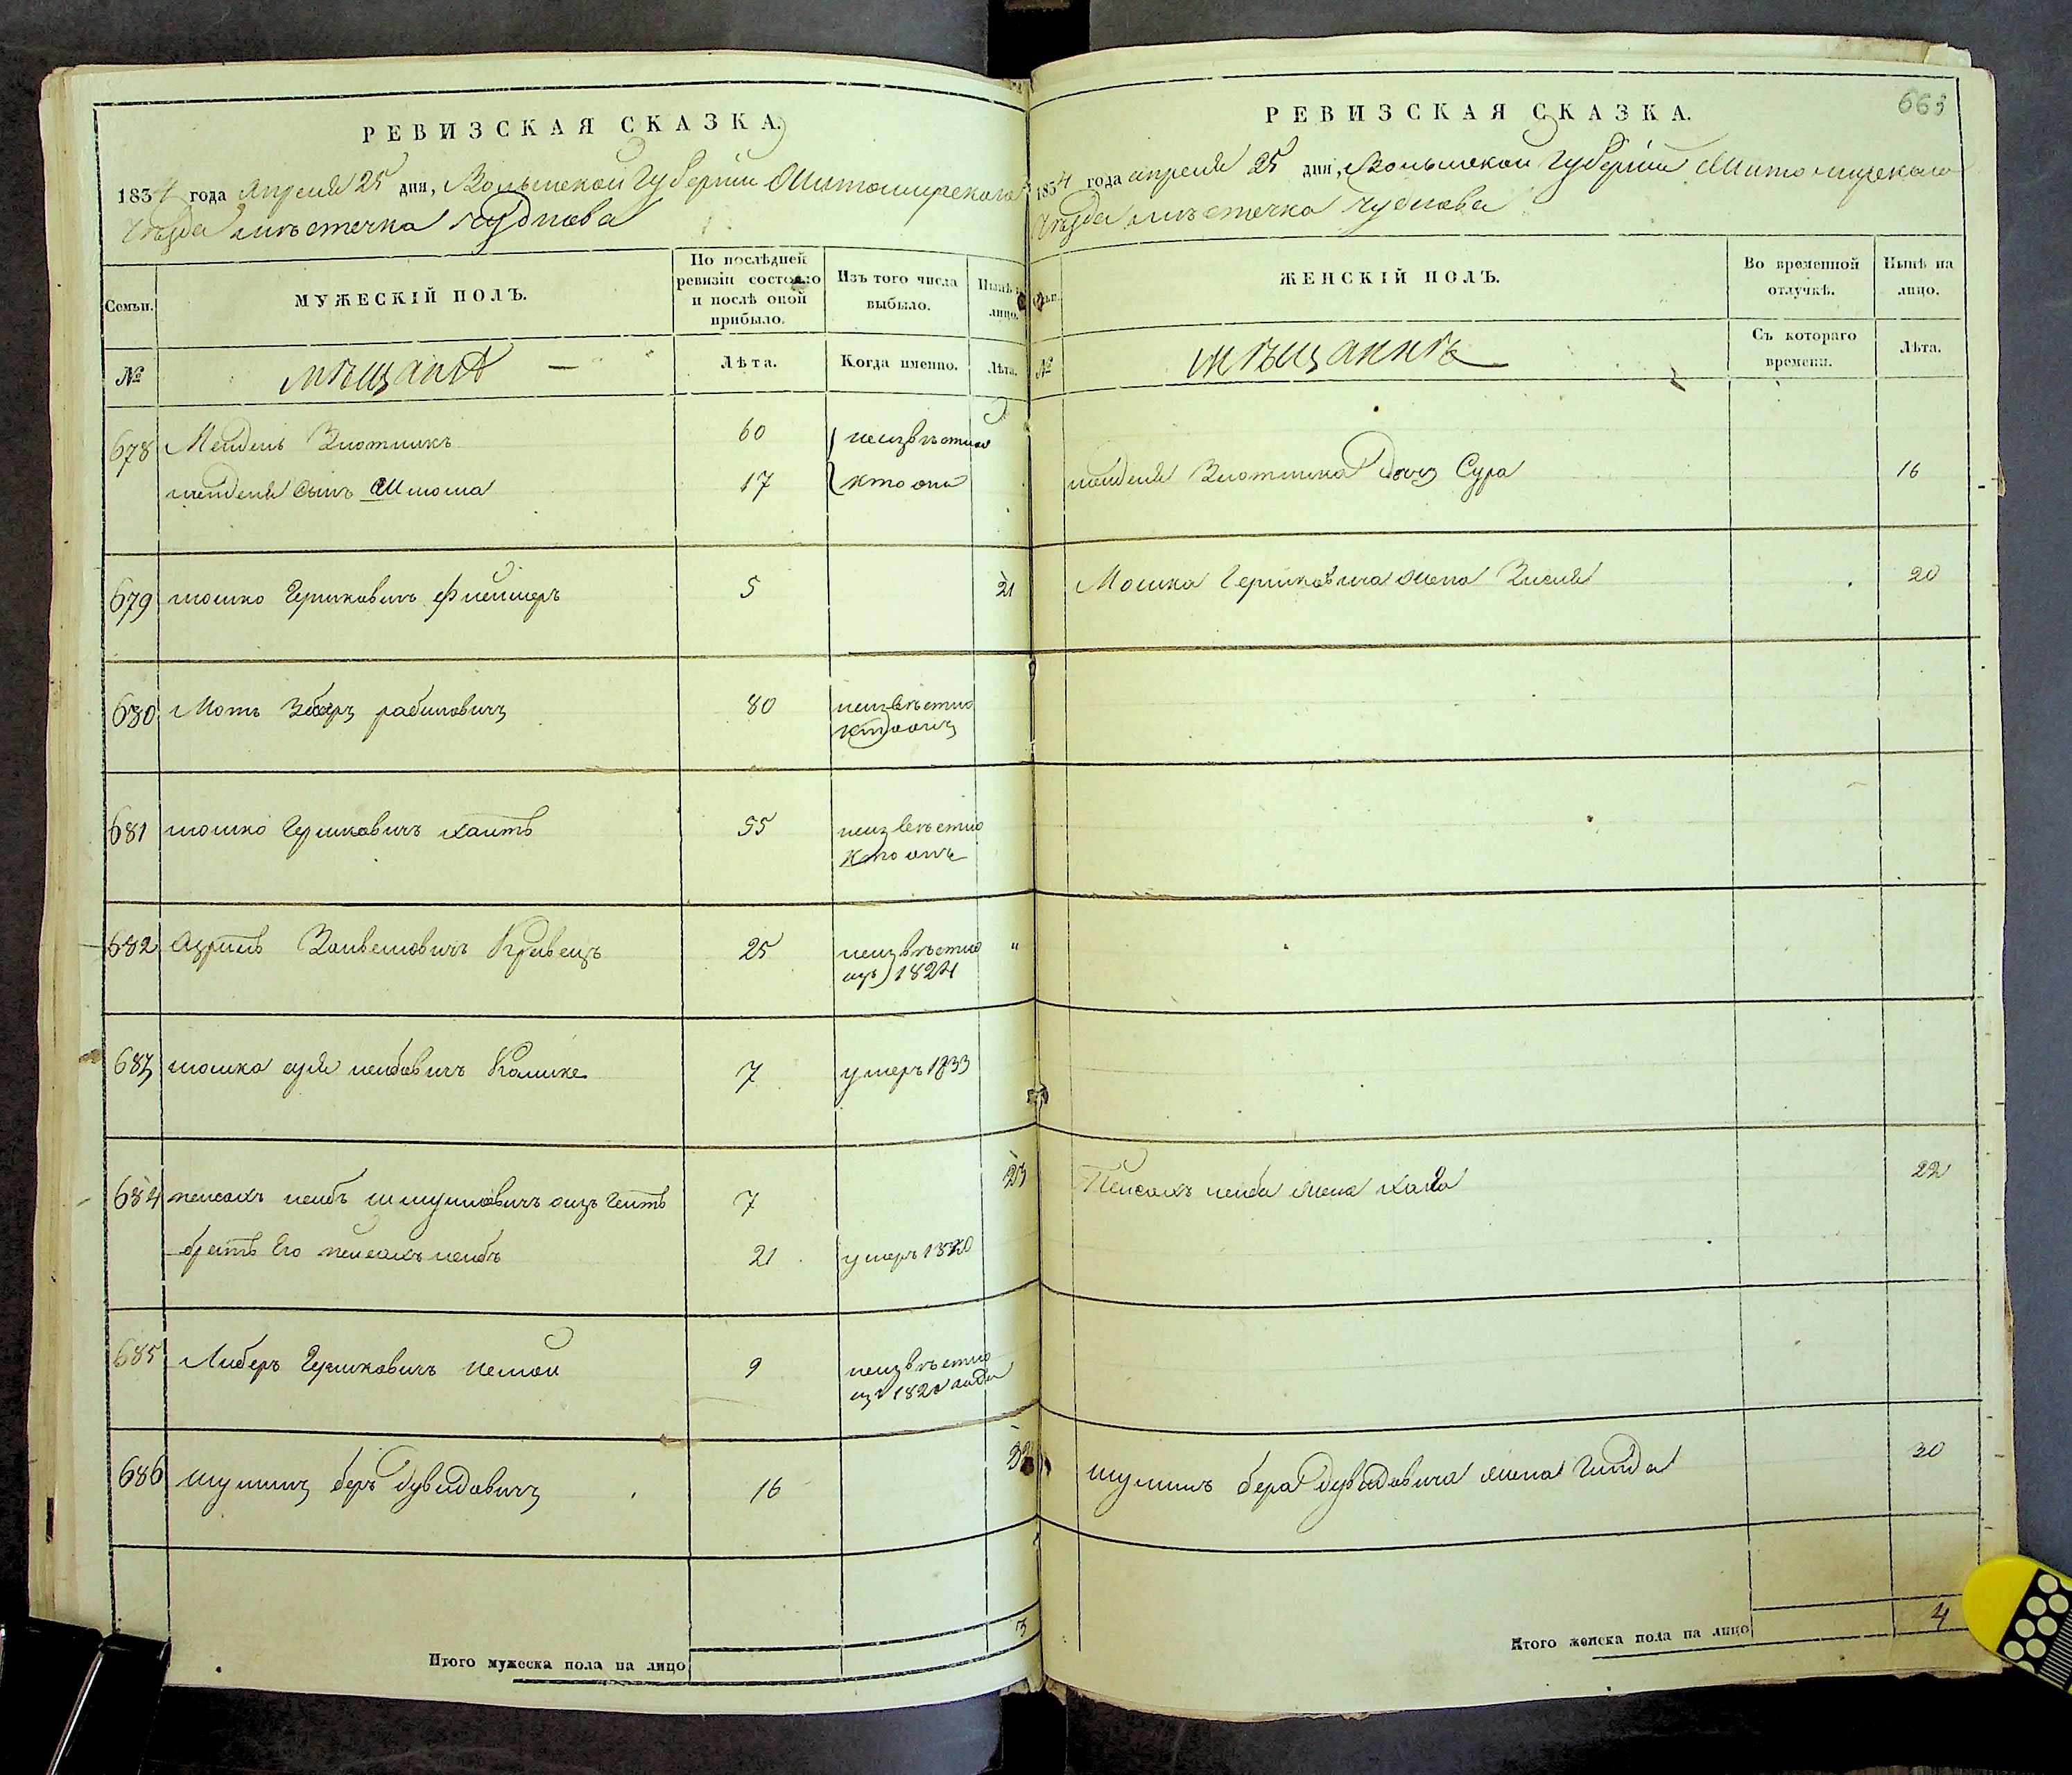 РЕВИЗСКАЯ СКАЗКА.
1834 года Апреля 25 дня, Волынской Губернии Житомирского
Уезда местечка Чуднова
Семьи.
МУЖЕСКІЙ ПОЛЪ.
По послѣдней ревизіи состояло и послѣ оной прибыло.
Изъ того числа выбыло.
Нынѣ на лицо.
№
мѣщанѣ
Лѣта.
Когда именно.
Лѣта.
678 Мендель Злотникъ 60 неизвѣстно
менделя сынъ 17 кто они
679 мошко Гершковичъ Флейшеръ 5 21
680 Мотъ рабиновичъ 80 неизвѣстно
кто онъ
681 мошко Гершковичъ 55 неизвѣстно
кто онъ
682 Азриль Кравецъ 25 неизвѣстно "
1824
683 мошко лейбовичъ 7 умеръ 1833
684 пейсахъ лейбъ шмулиовичъ 7 23
братъ Его пейсахъ лейбъ 21 умеръ
685 Либеръ Гершковичъ 9 неизвѣстно
года
686 беръ дувидовичъ 16 32
Итого мужеска пола на лицо 3
663
РЕВИЗСКАЯ СКАЗКА.
1834 года апреля 25 дня, Волынской Губерніи Житомирского
Уезда местечка Чуднова
Семьи.
ЖЕНСКІЙ ПОЛЪ.
Во временной отлучкѣ.
Нынѣ на лицо.
№
мѣщанкѣ
Съ котораго времени.
Лѣта.
менделя Злотника дочь Сура 16
Мошка Гершковича жена Зисля 20
Пейсахъ лейба жена хава 22
бера дувидовича жена Гинда 30
Итого женска пола на лицо 4